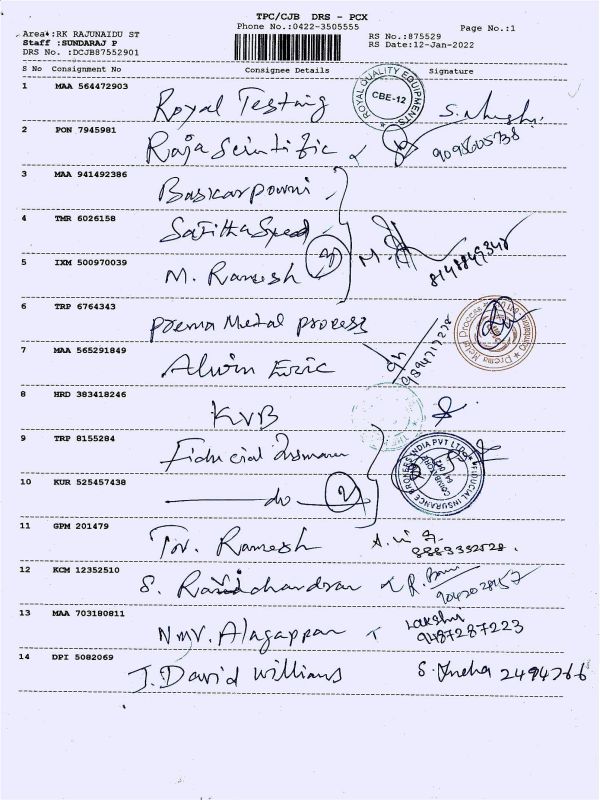 TPC/CJB DRS - PCX
Phone No.:0422-3505555
Page No.:1
Area*:RK RAJUNAIDU ST
Staff :SUNDARAJ P
DRS No. :DCJB87552901
RS No.:875529
RS Date:12-Jan-2022
S No Consignment No Consignee Details Signature
1 MAA 564472903 Royal Testing
ROYAL QUALITY EQUIPMENTS
CBE-12
2 PON 7945981 Raja Scintific
3 MAA 941492386 Baskar
4 TMR 6026158
5 IXM 500970039 M. Ramesh 8148849348
6 TRP 6764343 Prema Metal process
7 MAA 565291849 Alwin Eric
8 HRD 383418246 KVB
9 TRP 8155284 Fiducial
FIDUCIAL INSURANCE BROKERS INDIA PVT LTD
10 KUR 525457438 do 2
11 GPM 201479 Tvr. Ramesh
12 KCM 12352510 S. Ravichandran
13 MAA 703180811 Nmv. Alagappan Lakshmi
9487287223
14 DPI 5082069 J. David Willians 2494266